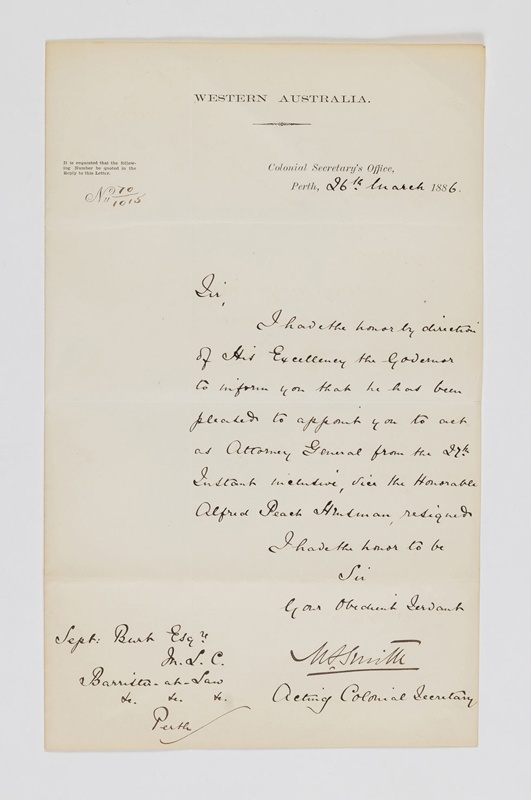 WESTERN AUSTRALIA.
It is requested that the follow-
ing Number be quoted in the
Reply to this Letter.
Colonial Secretary's Office,
Perth, 26th March 1886.
Sir,
I have the honor by direction
of His Excellency the Governor
to inform you that he has been
pleased to appoint you to act
as Attorney General from the 27th
Instant inclusive, vice the Honorable
Alfred Peach Hensman, resigned
I have the honor to be
Sir
Your Obedient Servant
M S Smith
Acting Colonial Secretary
Sept: Burt Esqre
M. L. C.
Barrister-at-Law
&c. &c. &c.
Perth